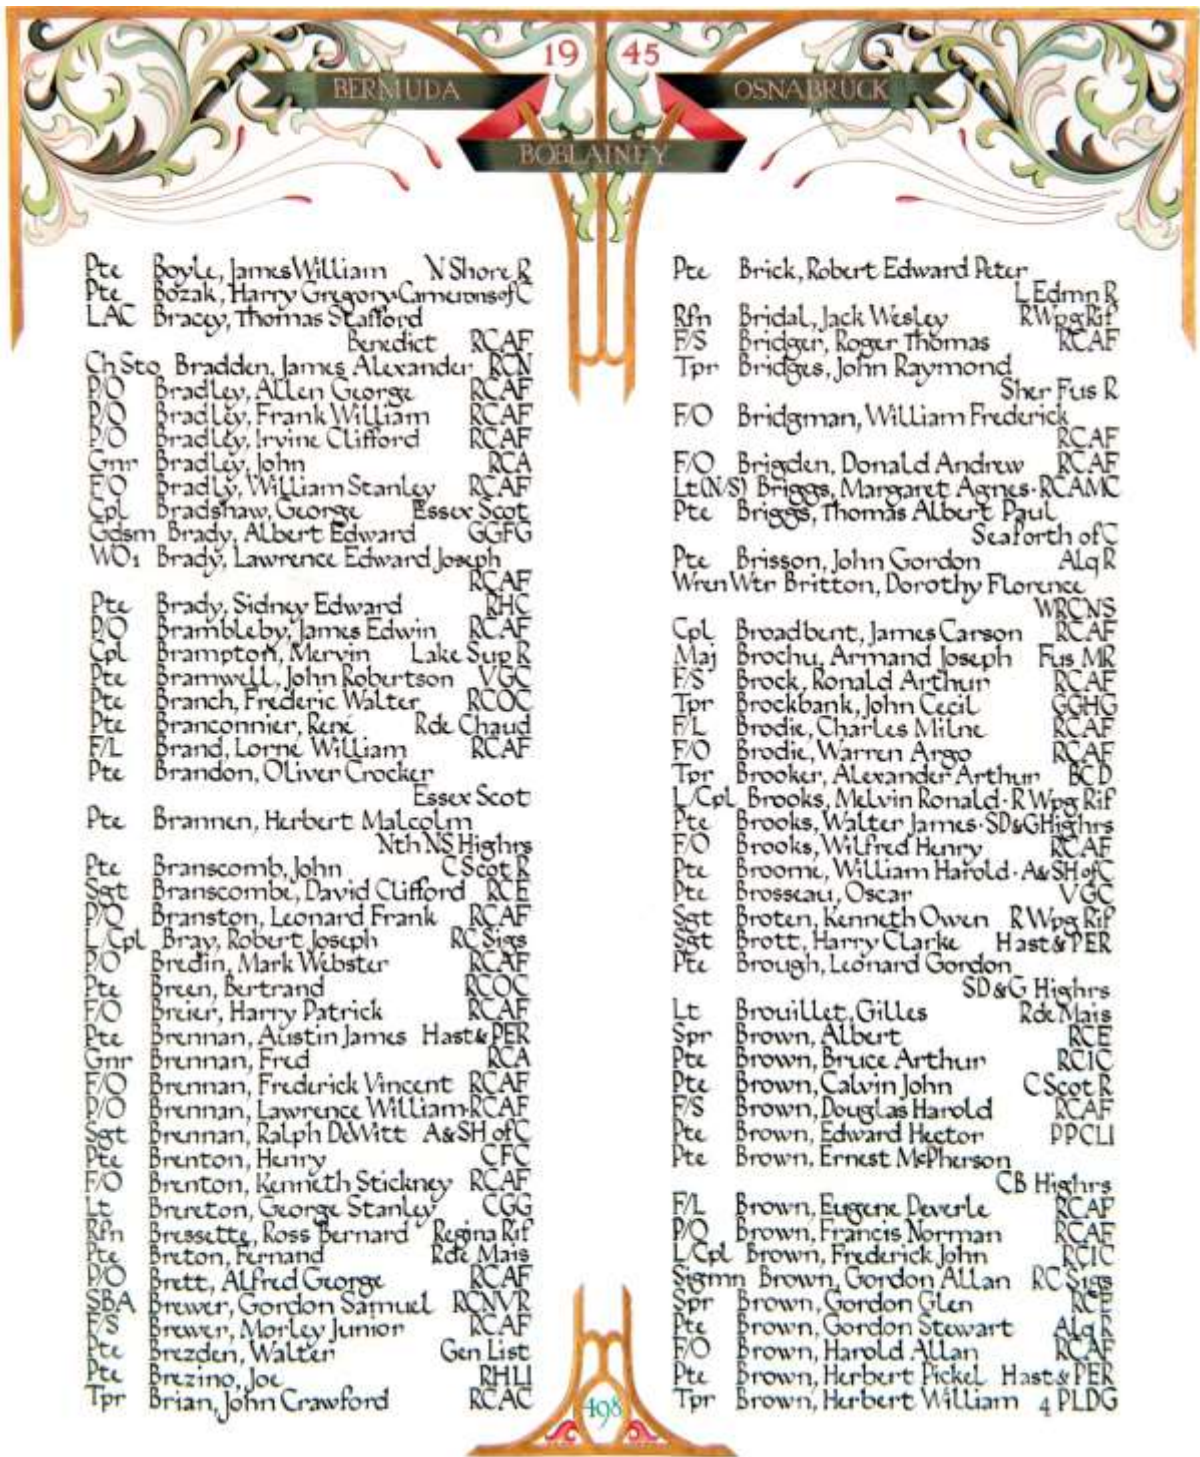 19 45
BERMUDA
OSNABRÜCK
BOBLAINEY
Pte Boyle, James William N Shore R
Pte Bozak, Harry Gregory·Camerons of C
LAC Bracey, Thomas Stafford
Benedict RCAF
Ch Sto Bradden, James Alexander RCN
P/O Bradley, Allen George RCAF
P/O Bradley, Frank William RCAF
P/O Bradley, Irvine Clifford RCAF
Gnr Bradley, John RCA
F/O Bradly, William Stanley RCAF
Cpl Bradshaw, George Essex Scot
Gdsm Brady, Albert Edward GGFG
WO1 Brady, Lawrence Edward Joseph
RCAF
Pte Brady, Sidney Edward RHC
P/O Brambleby, James Edwin RCAF
Cpl Brampton, Mervin Lake Sup R
Pte Bramwell, John Robertson VGC
Pte Branch, Frederic Walter RCOC
Pte Branconnier, René R de Chaud
F/L Brand, Lorne William RCAF
Pte Brandon, Oliver Crocker
Essex Scot
Pte Brannen, Herbert Malcolm
Nth NS Highrs
Pte Branscomb, John C Scot R
Sgt Branscombe, David Clifford RCE
P/O Branston, Leonard Frank RCAF
L/Cpl Bray, Robert Joseph RC Sigs
P/O Bredin, Mark Webster RCAF
Pte Breen, Bertrand RCOC
F/O Breier, Harry Patrick RCAF
Pte Brennan, Austin James Hast & PER
Gnr Brennan, Fred RCA
F/O Brennan, Frederick Vincent RCAF
P/O Brennan, Lawrence William·RCAF
Sgt Brennan, Ralph DeWitt A&SH of C
Pte Brenton, Henry CFC
F/O Brenton, Kenneth Stickney RCAF
Lt Brereton, George Stanley CGG
Rfn Bressette, Ross Bernard Regina Rif
Pte Breton, Fernand R de Mais
P/O Brett, Alfred George RCAF
SBA Brewer, Gordon Samuel RCNVR
F/S Brewer, Morley Junior RCAF
Pte Brezden, Walter Gen List
Pte Brezino, Joe RHLI
Tpr Brian, John Crawford RCAC
Pte Brick, Robert Edward Peter
L Edmn R
Rfn Bridal, Jack Wesley R Wpg Rif
F/S Bridger, Roger Thomas RCAF
Tpr Bridges, John Raymond
Sher Fus R
F/O Bridgman, William Frederick
RCAF
F/O Brigden, Donald Andrew RCAF
Lt(N/S) Briggs, Margaret Agnes·RCAMC
Pte Briggs, Thomas Albert Paul
Seaforth of C
Pte Brisson, John Gordon Alq R
Wren Wtr Britton, Dorothy Florence
WRCNS
Cpl Broadbent, James Carson RCAF
Maj Brochu, Armand Joseph Fus MR
F/S Brock, Ronald Arthur RCAF
Tpr Brockbank, John Cecil GGHG
F/L Brodie, Charles Milne RCAF
F/O Brodie, Warren Argo RCAF
Tpr Brooker, Alexander Arthur BCD
L/Cpl Brooks, Melvin Ronald·R Wpg Rif
Pte Brooks, Walter James·SD&G Highrs
F/O Brooks, Wilfred Henry RCAF
Pte Broome, William Harold·A&SH of C
Pte Brosseau, Oscar VGC
Sgt Broten, Kenneth Owen R Wpg Rif
Sgt Brott, Harry Clarke Hast & PER
Pte Brough, Leonard Gordon
SD&G Highrs
Lt Brouillet, Gilles R de Mais
Spr Brown, Albert RCE
Pte Brown, Bruce Arthur RCIC
Pte Brown, Calvin John C Scot R
F/S Brown, Douglas Harold RCAF
Pte Brown, Edward Hector PPCLI
Pte Brown, Ernest McPherson
CB Highrs
F/L Brown, Eugene Deverle RCAF
P/O Brown, Francis Norman RCAF
L/Cpl Brown, Frederick John RCIC
Sigmn Brown, Gordon Allan RC Sigs
Spr Brown, Gordon Glen RCE
Pte Brown, Gordon Stewart Alq R
F/O Brown, Harold Allan RCAF
Pte Brown, Herbert Pickel Hast & PER
Tpr Brown, Herbert William 4 PLDG
498